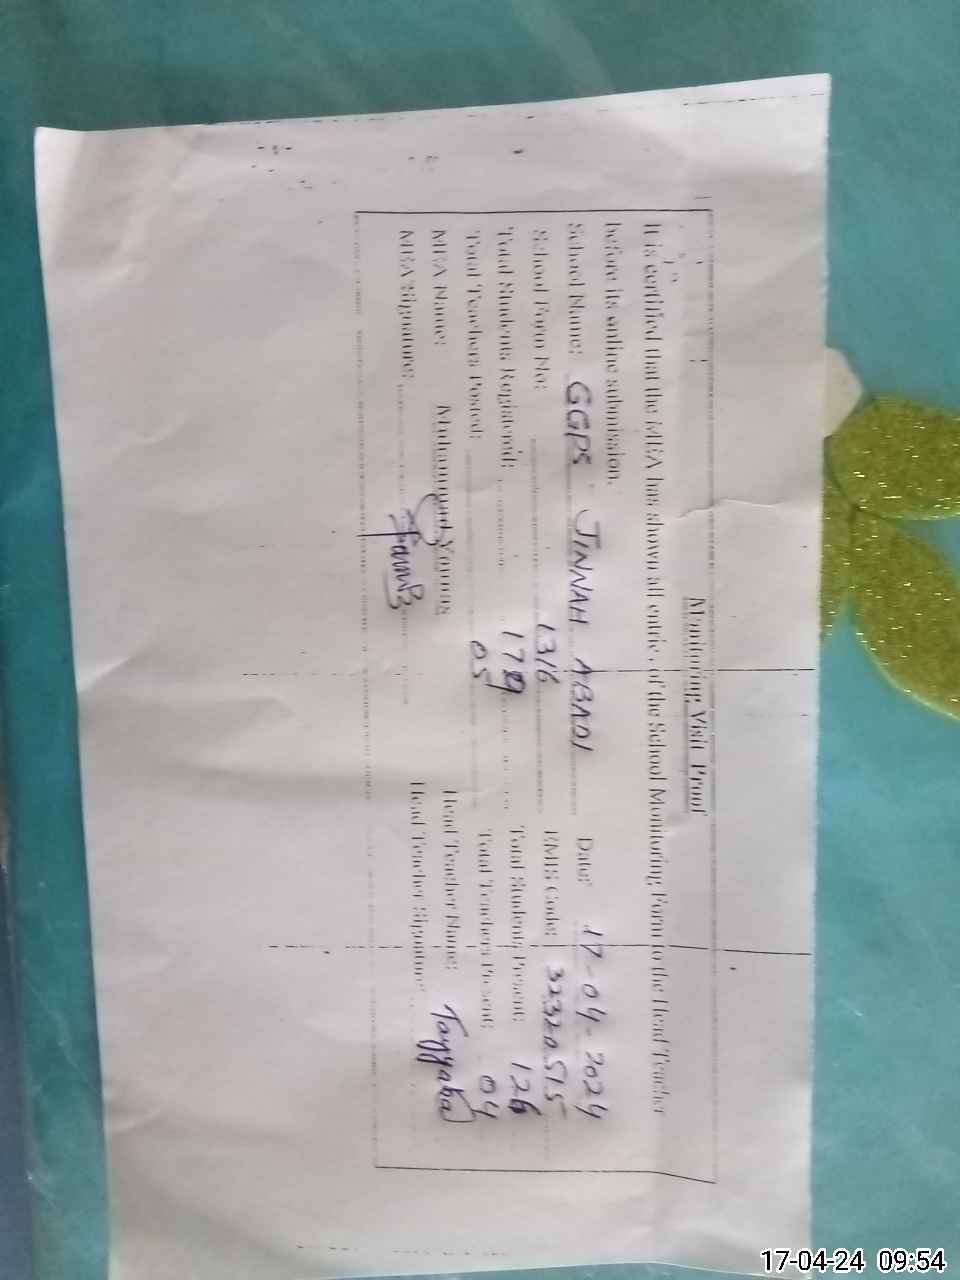 Monitoring Visit Proof
It is certified that the MEA has shown all entries of the School Monitoring Form to the Head Teacher
before its online submission.
School Name: GGPS JINNAH ABADI Date: 17-04-2024
School Form No: 1316 EMIS Code: 32320515
Total Students Registered: 179 Total Students Present: 126
Total Teachers Posted: 05 Total Teachers Present: 04
MEA Name: Muhammad Younus Head Teacher Name: Tayyaba
MEA Signature: Head Teacher Signature:
17-04-24 09:54